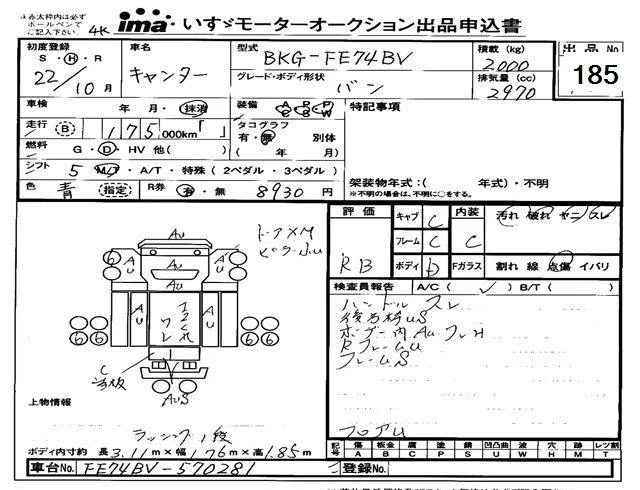 ※赤太枠内は必ず
ボールペンで
ご記入下さい。
4K
ima いすゞモーターオークション出品申込書
初度登録
S ・ H ・ R
22/10 月
車名
キャンター
型式
BKG-FE74BV
グレード・ボディ形状
バン
積載 (kg)
2000
排気量 (cc)
2970
出品 No
185
車検 年 ・ 月 ・ 抹消
装備 A C P C P W
特記事項
走行 B 175,000km「 」
タコグラフ
有・無 別体
( 年 月)
燃料 G ・ D ・ HV 他( )
シフト 5 M/T ・ A/T ・ 特殊 ( 2ペダル ・ 3ペダル )
架装物年式:( 年式)・不明
※不明の場合は、不明に○をする。
色 青 (指定) R券 有・無 8930 円
評価
RB
キャブ C
フレーム C
ボディ D
内装 C
Fガラス
汚れ 破れ ヤニ スレ
割れ 線 点傷 イバリ
検査員報告 A/C( ✓ ) B/T( )
ハンドル スレ
ボデー内 AU
RフレームU
フレームS
フロアU
AU
AU
AU
AU
AU
AU
AUS
C
6 6
6 6 6 6
上物情報
ラッシング1段
ボディ内寸約 長3.11m×幅1.76m×高1.85m
記号 傷 A 板金 B 腐 C 塗 P 錆 S 凹凸曲 U 波 W 穴 H 跡 M レツ割 T
車台No. FE74BV-570281
登録No.